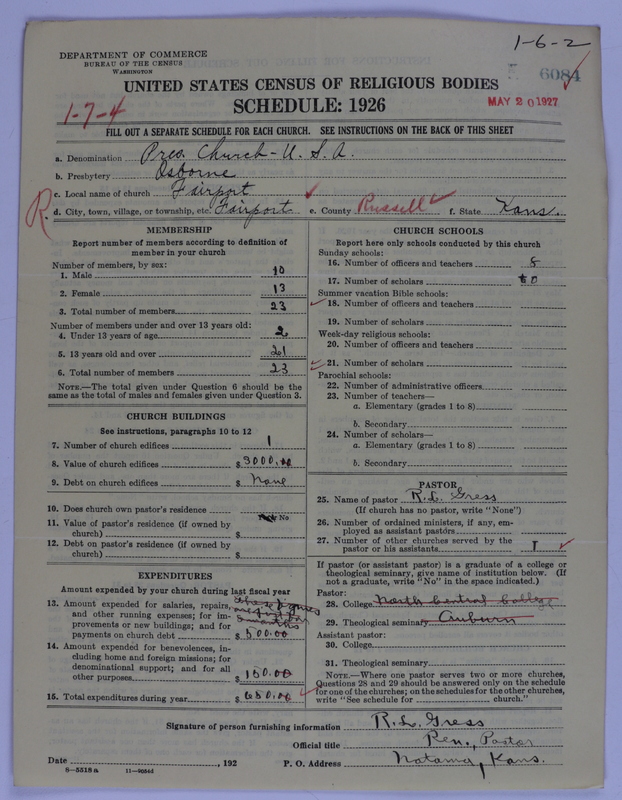 1-6-2
DEPARTMENT OF COMMERCE
BUREAU OF THE CENSUS
WASHINGTON
6084
UNITED STATES CENSUS OF RELIGIOUS BODIES
MAY 20 1927
SCHEDULE: 1926
1-7-4
FILL OUT A SEPARATE SCHEDULE FOR EACH CHURCH. SEE INSTRUCTIONS ON THE BACK OF THIS SHEET
a. Denomination Pres. Church - U. S. A.
b. Presbytery Osborne
c. Local name of church Fairport
R. d. City, town, village, or township, etc. Fairport e. County Russell f. State Kans.
MEMBERSHIP
Report number of members according to definition of
member in your church
Number of members, by sex:
1. Male 10
2. Female 13
3. Total number of members 23
Number of members under and over 13 years old:
4. Under 13 years of age 2
5. 13 years old and over 21
6. Total number of members 23
NOTE.—The total given under Question 6 should be the
same as the total of males and females given under Question 3.
CHURCH BUILDINGS
See instructions, paragraphs 10 to 12
7. Number of church edifices 1
8. Value of church edifices $ 3000.00
9. Debt on church edifices $ None
10. Does church own pastor's residence
No
11. Value of pastor's residence (if owned by
church) $
12. Debt on pastor's residence (if owned by
church) $
EXPENDITURES
Amount expended by your church during last fiscal year
13. Amount expended for salaries, repairs,
and other running expenses; for im-
provements or new buildings; and for
payments on church debt $ 500.00
these figures
months
14. Amount expended for benevolences, in-
cluding home and foreign missions; for
denominational support; and for all
other purposes $ 150.00
15. Total expenditures during year $ 650.00
CHURCH SCHOOLS
Report here only schools conducted by this church
Sunday schools:
16. Number of officers and teachers 8
17. Number of scholars 60
Summer vacation Bible schools:
18. Number of officers and teachers
19. Number of scholars
Week-day religious schools:
20. Number of officers and teachers
21. Number of scholars
Parochial schools:
22. Number of administrative officers
23. Number of teachers—
a. Elementary (grades 1 to 8)
b. Secondary
24. Number of scholars—
a. Elementary (grades 1 to 8)
b. Secondary
PASTOR
25. Name of pastor R. L. Gress
(If church has no pastor, write "None")
26. Number of ordained ministers, if any, em-
ployed as assistant pastors
27. Number of other churches served by the
pastor or his assistants 1
If pastor (or assistant pastor) is a graduate of a college or
theological seminary, give name of institution below. (If
not a graduate, write "No" in the space indicated.)
Pastor:
28. College North Central College
29. Theological seminary Auburn
Assistant pastor:
30. College
31. Theological seminary
NOTE.—Where one pastor serves two or more churches,
Questions 28 and 29 should be answered only on the schedule
for one of the churches; on the schedules for the other churches,
write "See schedule for church."
Signature of person furnishing information R. L. Gress
Official title Rev., Pastor
Date , 192 P. O. Address Natoma, Kans.
8—5518a 11—9054d